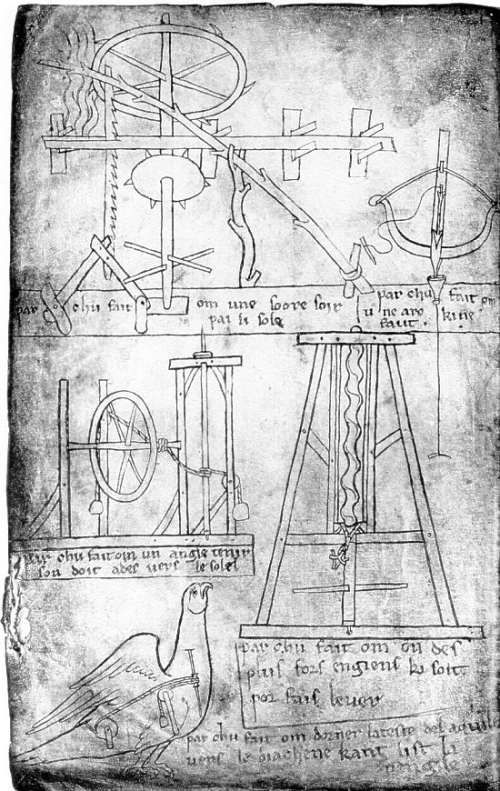 par chu fait om une soore soir
par li sole
par chu fait om
une arc
kine
faut
par chu fait om un angle tenir
son doit ades vers le solel
par chu fait om on des
plus fors engiens ki soit
por fais lever
par chu fait om dorner la teste del aquile
vers le diachene kant list la
vangile